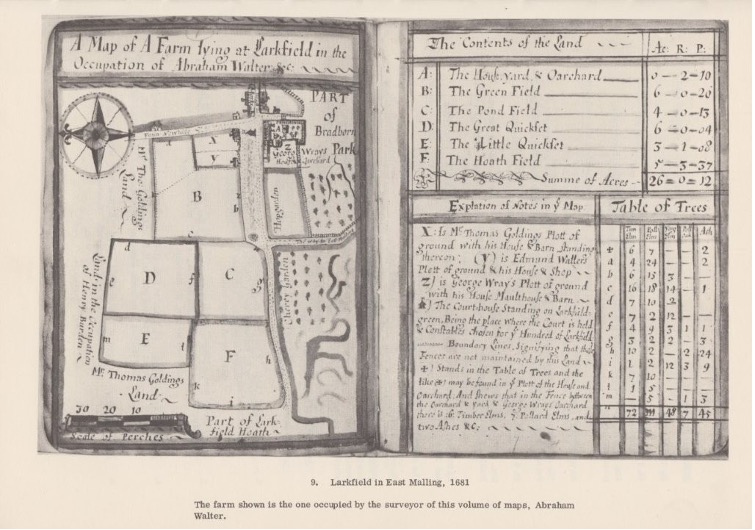 A Map of A Farm lying at Larkfield in the
Occupation of Abraham Walter &c.
PART
of
Bradborn
Park
George Wrays
Mr. Tho Goldings
Land
X
Y
A
B
Hopgarden
C
D
E
F
Cherry Garden
Land in the Occupation
of Henry Burden
Mr. Thomas Goldings
Land
30 20 10
Scale of Perches
Part of Lark-
field Heath
The Contents of the Land
Ac: R: P:
A: The House, yard & Oarchard 0-2-10
B: The Green Field 6-0-20
C: The Pond Field 4-0-13
D: The Great Quickset 6-0-04
E: The Little Quickset 3-1-08
F: The Hoath Field 5-3-37
Summe of Acres 26=0=12
Explation of Notes in ye Map
X: Is Mr. Thomas Goldings Plott of
ground with his House & Barn standing
thereon; (Y) is Edmund Walters
Plott of ground & his House & Shop
Z) is George Wray's Plott of ground
with his House Malthouse & Barn
The Courthouse Standing on Larkfield
green, Being the place where the Court is held
& Constables Chosen for ye Hundred of Larkfield
Boundary Lines, Signifying that those
Fences are not maintained by this Land
Stands in the Table of Trees and the
like may be found in ye Plott of the House and
Oarchard. And shews that in the Fence between
the Oarchard & Yard & George Wrays Oarchard
there is 6 Timber Elms, 7 Pollard Elms, and
two Ashes &c
Table of Trees
6 7 2
4 24 2
6 15 3
16 18 14 1
7 10 2
7 2 12
4 9 3 1 1
3 2 2 3
10 2 2 24
1 2 12 3 9
7 10
1 5
5 1 3
72 48 7 45
9. Larkfield in East Malling, 1681
The farm shown is the one occupied by the surveyor of this volume of maps, Abraham
Walter.